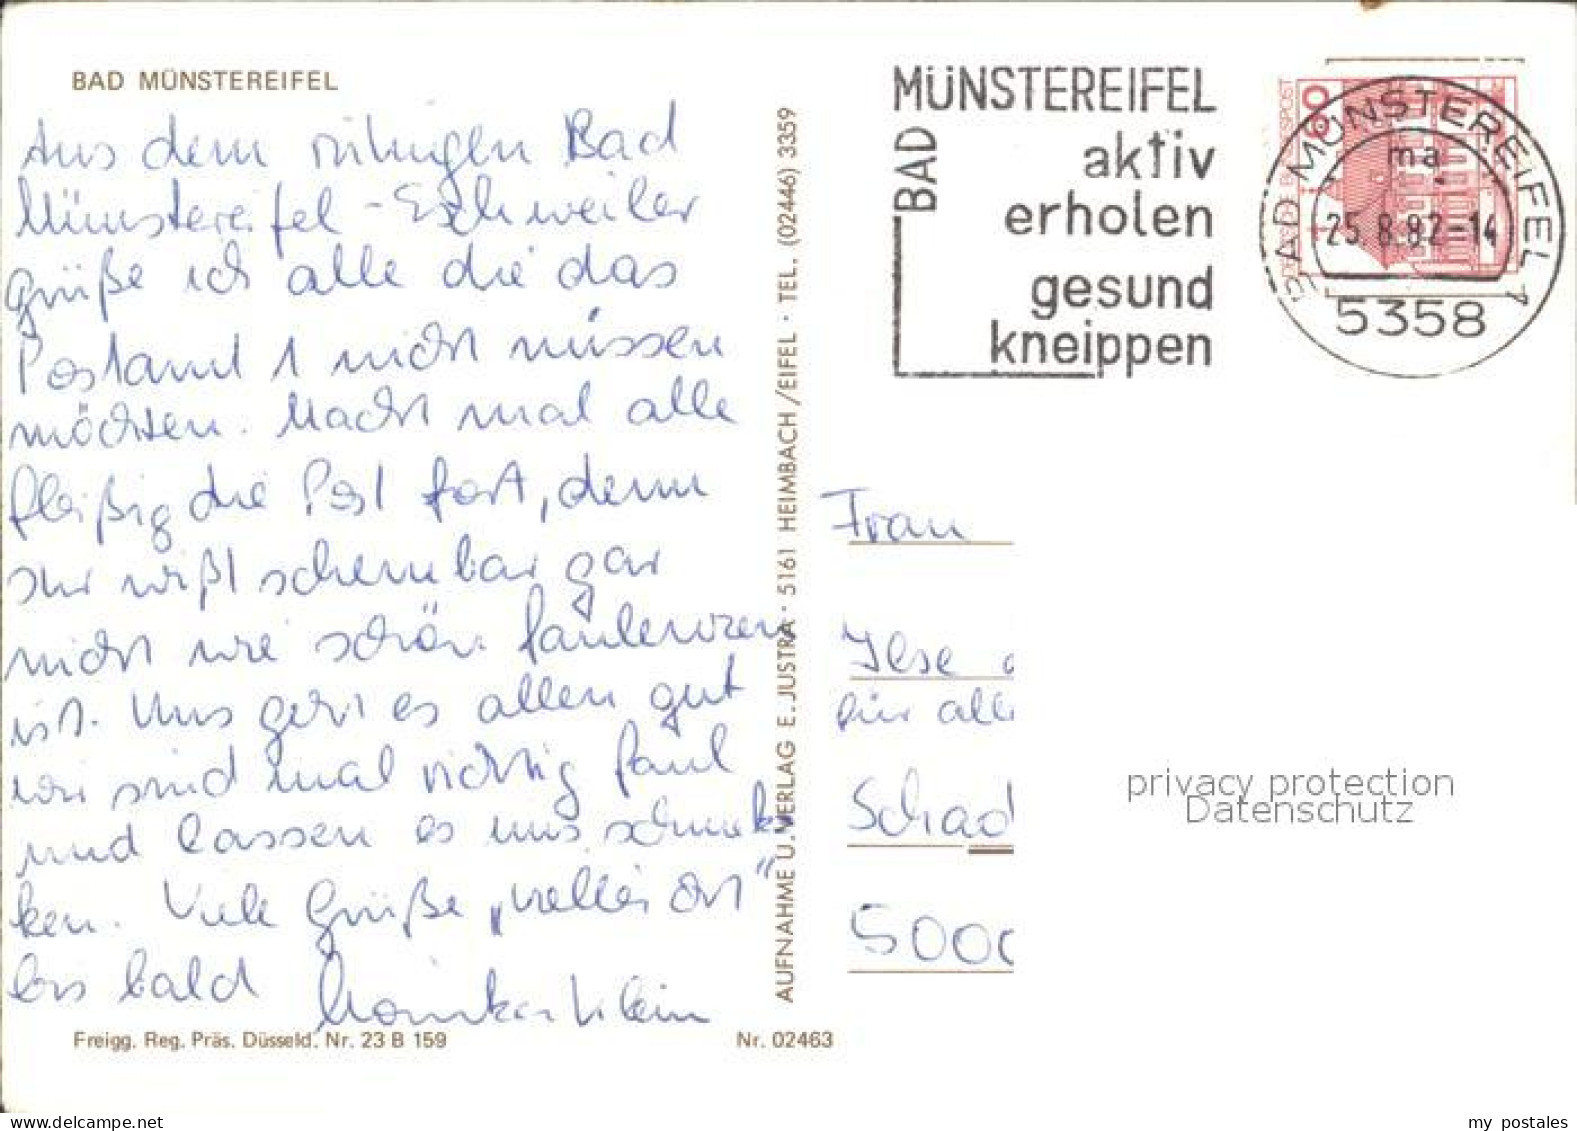 BAD MÜNSTEREIFEL
Aus dem ruhigen Bad
Münstereifel - Eschweiler
grüße ich alle die das
Postamt 1 nicht missen
möchten. Macht mal alle
fleißig die Post fort, denn
Ihr wißt scheinbar gar
nicht wie schön faulenzen
ist. Uns geht es allen gut
wir sind mal richtig faul
und lassen es uns schmek
ken. Viele Grüße
bis bald Monika Klein
Freigg. Reg. Präs. Düsseld. Nr. 23 B 159
Nr. 02463
AUFNAHME U. VERLAG E. JUSTRA · 5161 HEIMBACH/EIFEL · TEL. (02446) 3359
BAD
MÜNSTEREIFEL
aktiv
erholen
gesund
kneippen
60
BAD MÜNSTEREIFEL 1
ma
25.8.82-14
5358
Frau
Ilse
für alle
Schad
5000
privacy protection
Datenschutz
my postales